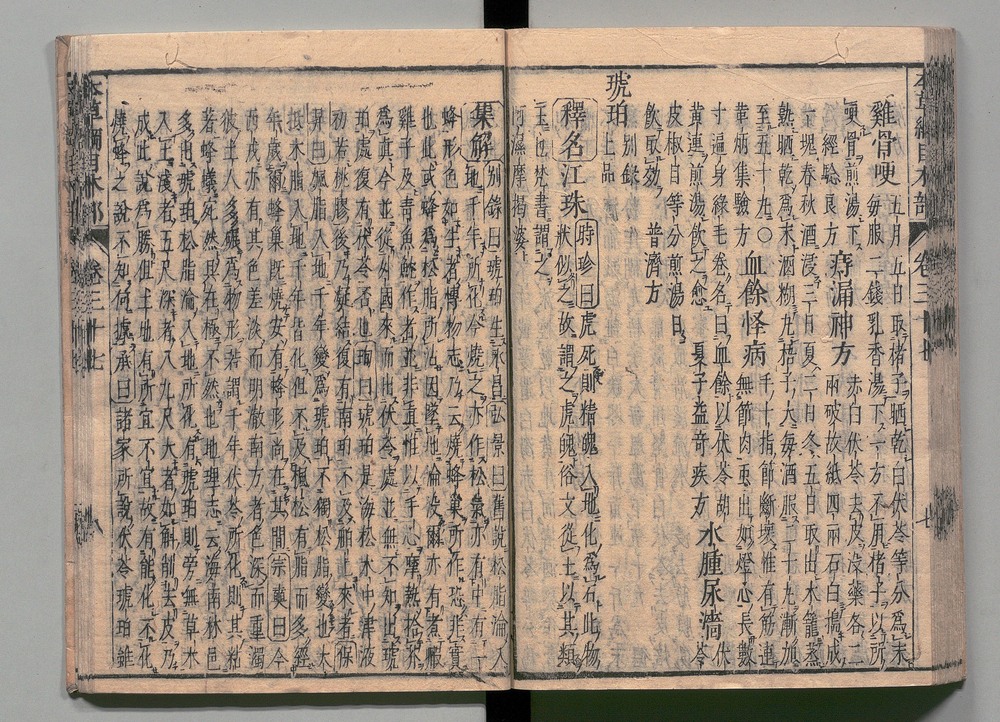 雞骨哽五月五日取楮子晒乾白伏苓等分爲末
毎服二錢乳香湯下一方不用楮子以所
哽骨煎湯下
經驗良方 痔漏神方赤白伏苓去皮没藥各二
兩破故紙四兩石臼搗成
一塊春秋酒浸三日夏二日冬五日取出木籠蒸
熟晒乾爲末酒糊丸梧子大毎酒服二十丸漸加
至五十丸〇血餘怪病十指節斷壞惟有筋連
無節肉虫出如燈心長數
董炳集驗方
寸遍身綠毛卷名曰血餘以伏苓胡
黄連煎湯飲之愈 夏子益奇疾方 水腫尿濇伏苓
皮椒目等分煎湯日
飲取效 普濟方
琥珀別録上品
釋名江珠時珍曰虎死則精魄入地化爲石此物
狀似之故謂之虎魄俗文從玉以其類
玉也梵書謂之
阿濕摩揭婆
集解別録曰琥珀生永昌弘景曰舊説松脂淪入
地千年所化今燒之亦作松氣亦有中有一
蜂形色如生者博物志乃云燒蜂巢所作恐非實
也此或蜂爲松脂所沾因墜地淪没爾亦有煮毈
雞子及青魚魫作者並非眞惟以手心摩熱拾芥
爲真今並從外國來而出伏苓處並無不知出琥
珀處復有伏苓否也珣曰琥珀是海松木中津液
初若桃膠後乃凝結復有南珀不及舶上來者保
昇曰楓脂入地千年變爲琥珀不獨松脂變也大
抵木脂入地千年皆化但不及楓松有脂而多經
年歳爾蜂巢既燒安有蜂形尚在其間宗奭曰今
西戎亦有其色差淡而明澈南方者色深而重濁
彼土人多碾爲物形若謂千年伏苓所化則其粘
著蜂蟻宛然具在極不然也地理志云海南林邑
多出琥珀松脂淪入地所化有琥珀則旁無草木
入土淺者五尺深者八九尺大者如斛削去皮乃
成此説爲勝但土地有所宜不宜故有能化不化
燒蜂之説不知何據承曰諸家所説伏苓琥珀雖
本草綱目木部 卷三十七 八
卷三十七 七